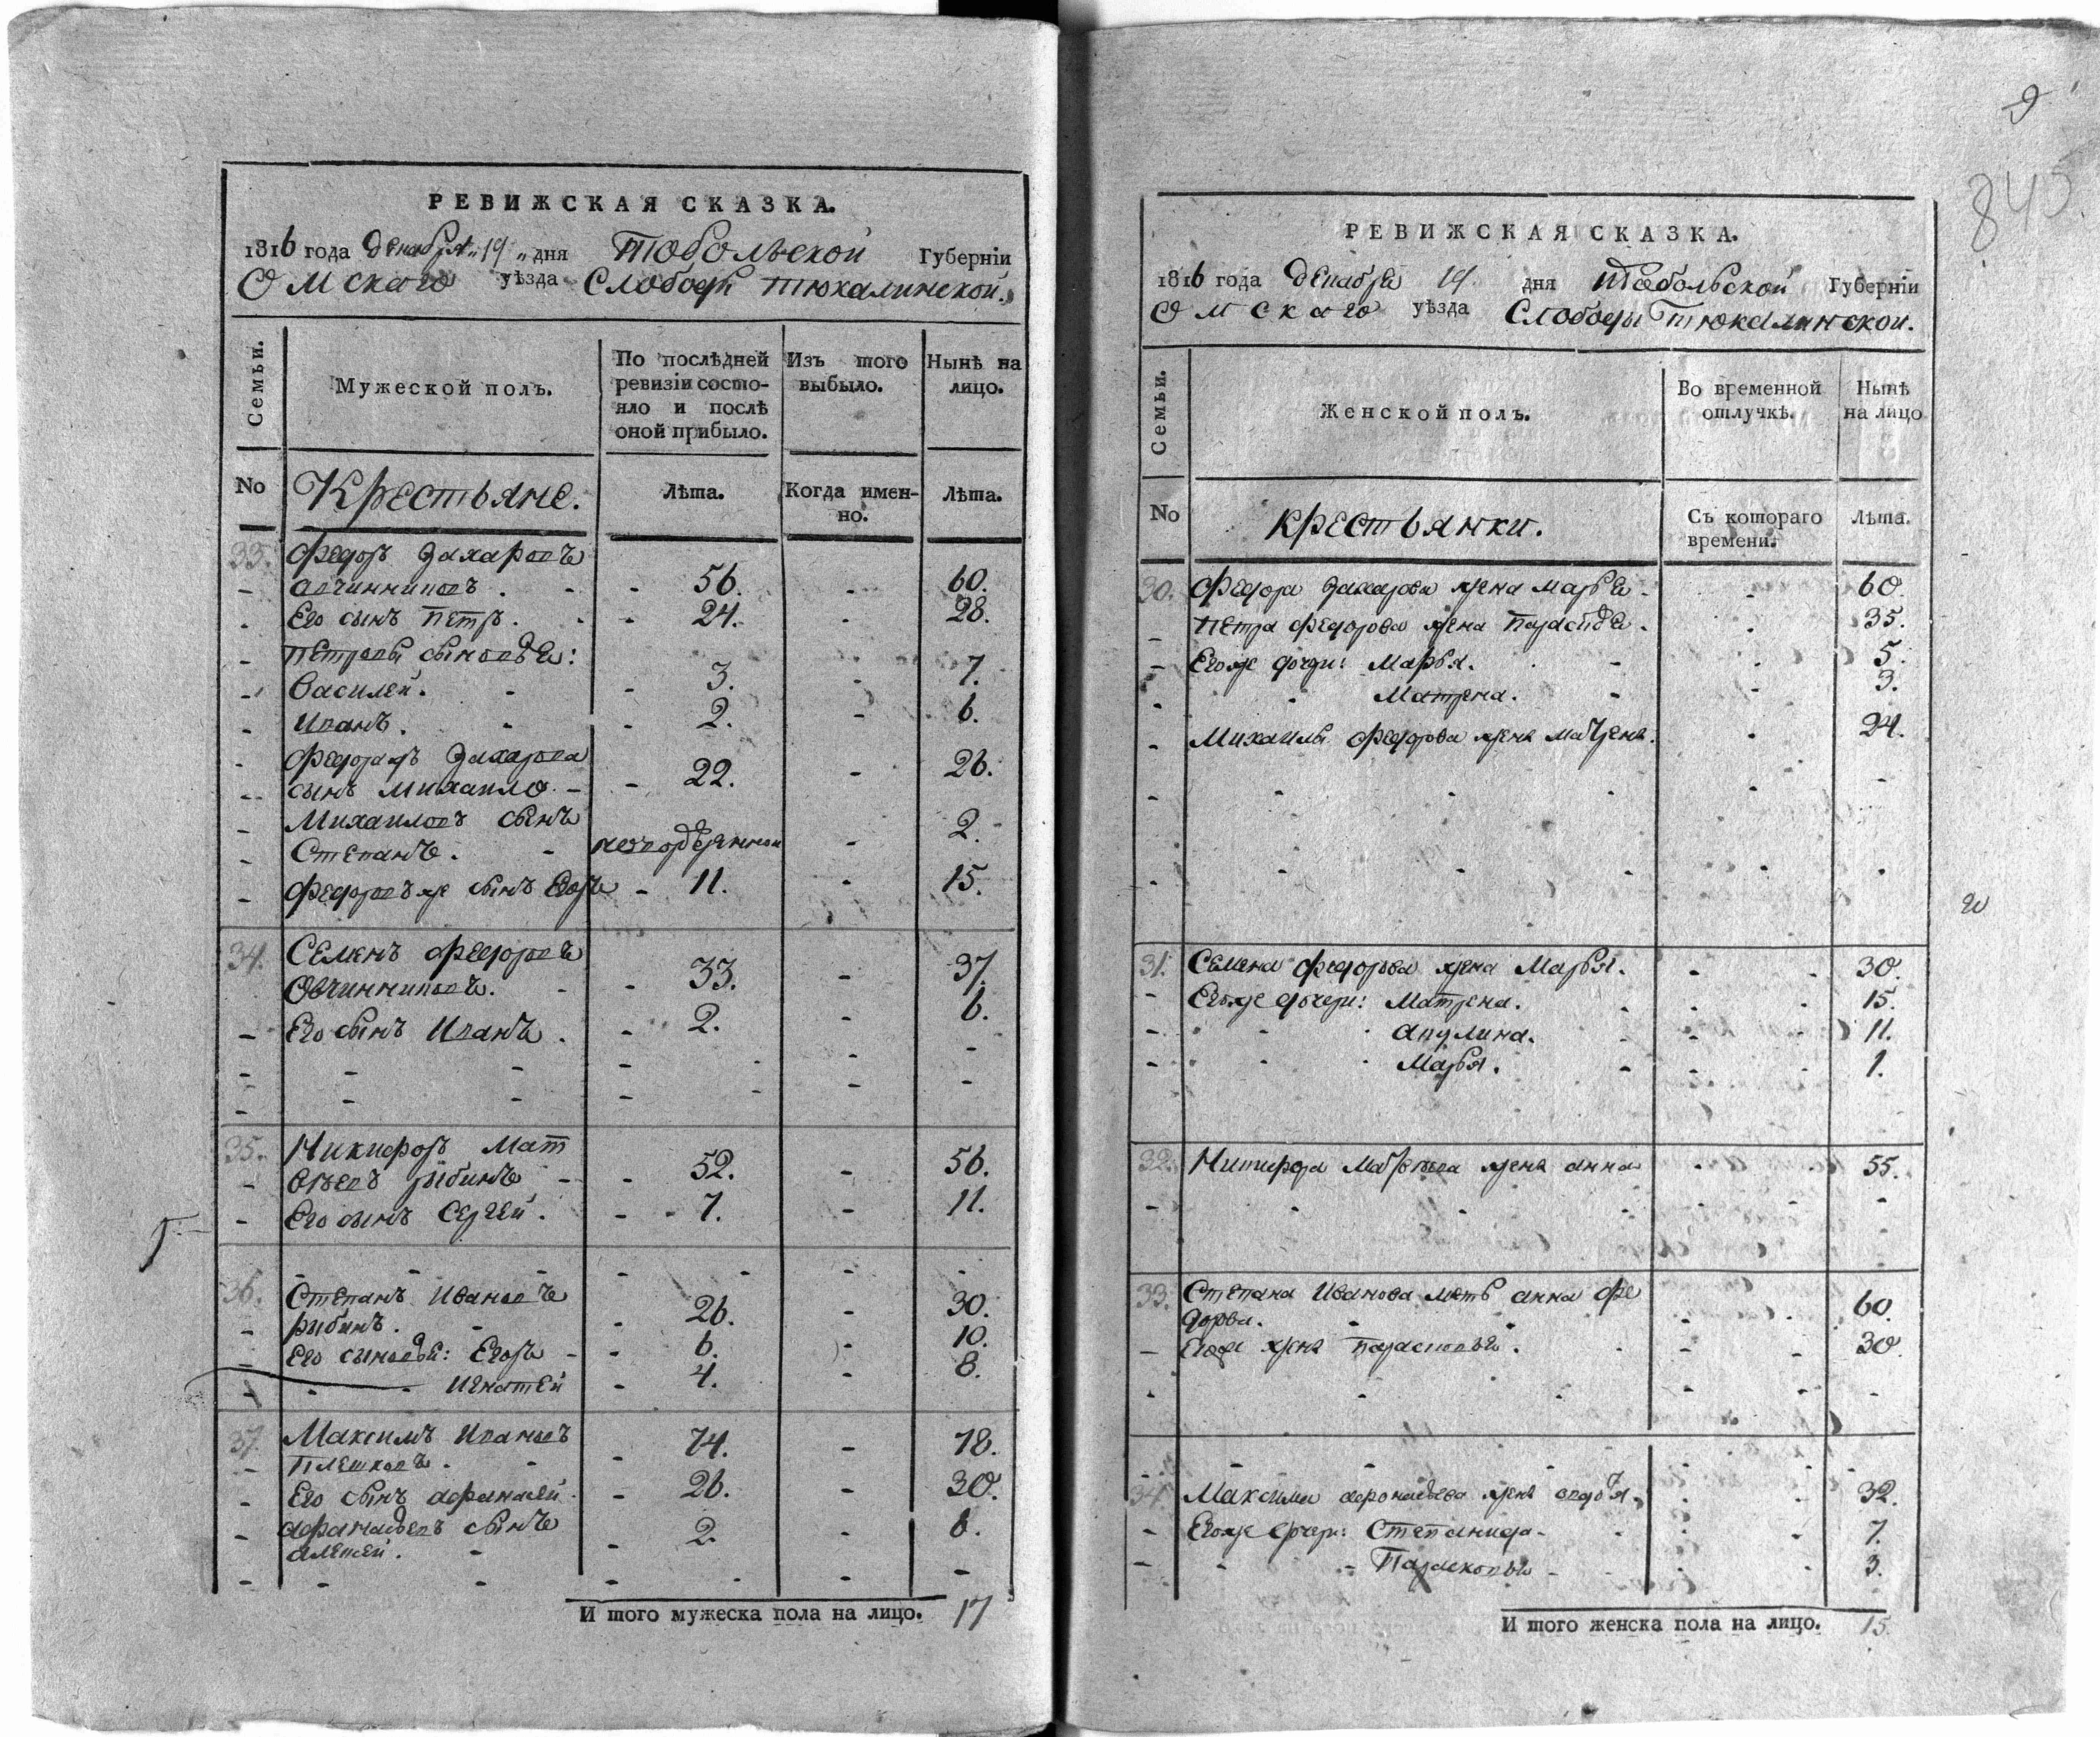 9
845
РЕВИЖСКАЯ СКАЗКА.
1816 года декабря 19 дня Тобольской Губерніи
Омскаго уѣзда Слободы Тюкалинской.
Семьи.
Мужеской полъ.
По послѣдней
ревизіи состо-
яло и послѣ
оной прибыло.
Изъ того
выбыло.
Нынѣ на
лицо.
No Крестьяне.
Лѣта.
Когда имен-
но.
Лѣта.
33. Федоръ Захаровъ
Овчинниковъ. 56. 60.
Его сынъ Петръ. 24. 28.
Петровы сыновья:
Василей. 3. 7.
Иванъ. 2. 6.
Федоръ Захарова
сынъ Михаило 22. 26.
Михаиловъ сынъ
Степанъ. 2.
Федоровъ же сынъ Егоръ 11. 15.
34. Семенъ Федоровъ
Овчинниковъ. 33. 37.
Его сынъ Иванъ. 2. 6.
35. Никифоръ Мат
вѣевъ рыбинъ 52. 56.
Его сынъ Сергей. 7. 11.
36. Степанъ Ивановъ
рыбинъ. 26. 30.
Его сыновья: Егоръ 6. 10.
Игнатей 4. 8.
37. Максимъ Ивановъ
Плешковъ. 74. 78.
Его сынъ афанасей 26. 30.
афанасьевъ сынъ
алексей. 2. 6.
И того мужеска пола на лицо. 17
РЕВИЖСКАЯ СКАЗКА.
1816 года декабря 19. дня Тобольской Губерніи
Омскаго уѣзда Слободы Тюкалинской.
Семьи.
Женской полъ.
Во временной
отлучкѣ.
Нынѣ
на лицо
No крестьянки.
Съ котораго
времени.
Лѣта.
30. Федора Захарова жена Марья 60.
Петра Федорова жена 35.
Егоже дочери: Марья. 5.
Матрена. 3.
Михаилы Федорова жена Матрена. 24.
31. Семена Федорова жена Марья. 30.
Егоже дочери: Матрена. 15.
акулина. 11.
Марья. 1.
32. Никифора Матвѣева жена анна 55.
33. Степана Иванова мать анна Фе
дорова. 60.
Егоже жена Парасковья. 30.
34. Максима афонасьева жена 32.
Егоже дочери: Степанида 7.
Парасковья 3.
И того женска пола на лицо. 15.